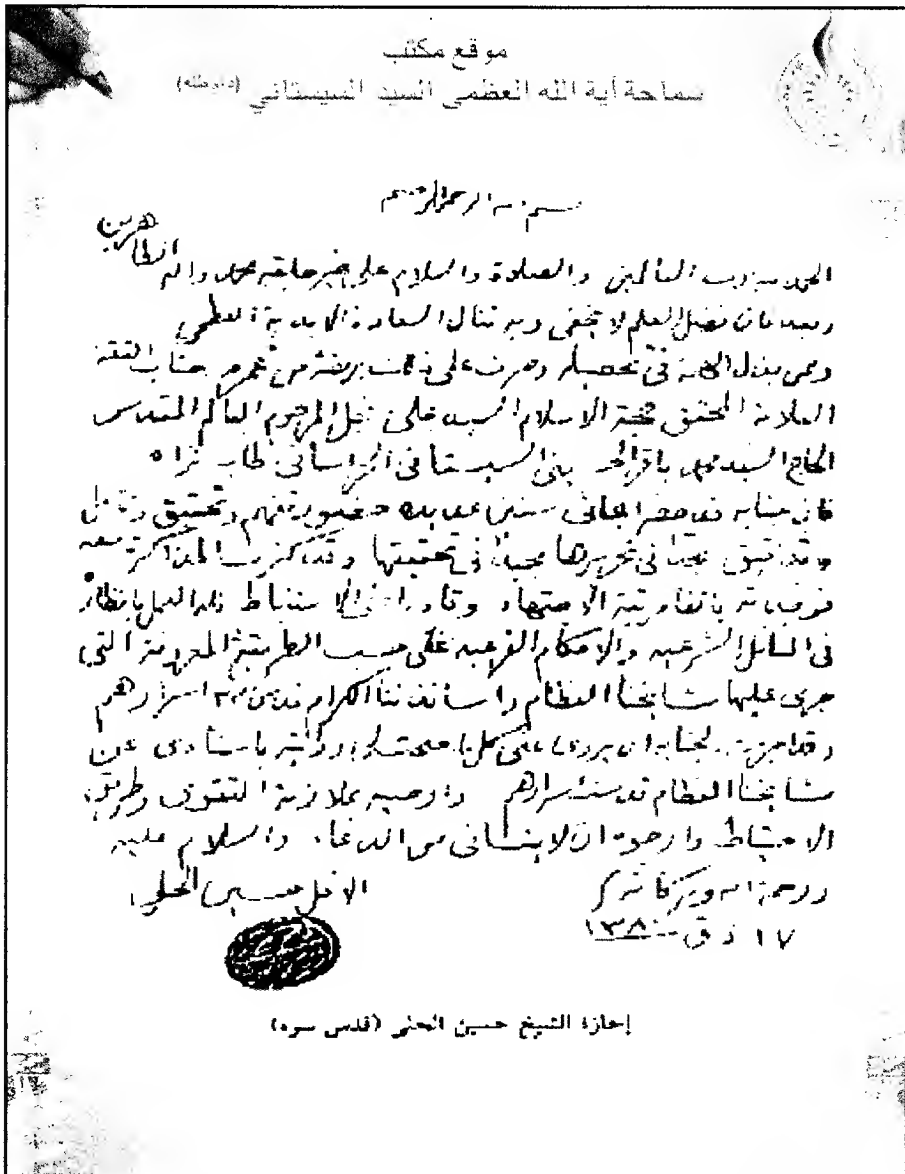 موقع مكتب
سماحة آية الله العظمى السيد السيستاني (دام ظله)
بسم الله الرحمن الرحيم
الحمد لله رب العالمين والصلاة والسلام على خير خلقه محمد واله الطاهرين
وبعد فان فضل العلم لا يخفى وبه تنال السعادة الابدية العظمى
وممن بذل الهمة في تحصيله وصرف على ذلك برهة من عمره جناب الثقة
العلامة المحقق حجة الاسلام السيد علي نجل المرحوم العالم المقدس
الحاج السيد محمد باقر الحسيني السيستاني الخراساني طاب ثراه
فان جنابه قد حضر ابحاثي سنين عديدة حضور تفهم وتحقيق وتأمل
وتدقيق مجدا في تحريرها مجيدا في تحقيقها وقد كثرت المذاكرة معه
فوجدته بالغا رتبة الاجتهاد وقادرا على الاستنباط فله العمل بانظاره
في المسائل الشرعيه والاحكام الفرعيه على حسب الطريقة المعروفة التي
جرى عليها مشايخنا العظام واساتذتنا الكرام قدس الله اسرارهم
وقد اجزت لجنابه ان يروي عني كل ما صحت لي روايته باسنادي عن
مشايخنا العظام قدست اسرارهم واوصيه بملازمة التقوى وطريق
الاحتياط وارجوه ان لا ينساني من الدعاء والسلام عليه
ورحمة الله وبركاته
الاقل حسين الحلي
١٧ ذق ١٣٨٠
إجازة الشيخ حسين الحلي (قدس سره)